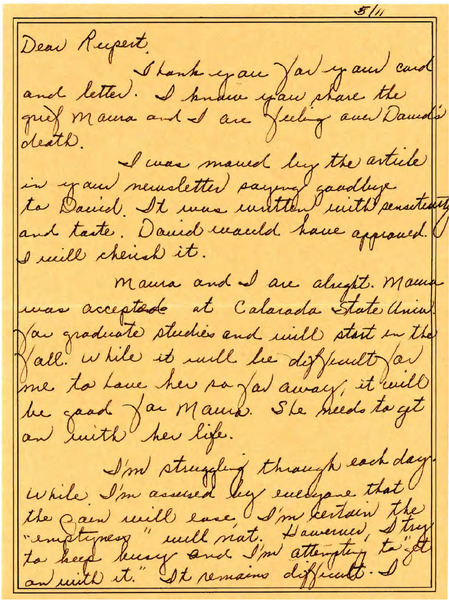 5/11
Dear Rupert,
Thank you for your card
and letter. I know you share the
grief Maura and I are feeling over David's
death.
I was moved by the article
in your newsletter saying goodbye
to David. It was written with sensitivity
and taste. David would have approved.
I will cherish it.
Maura and I are alright. Maura
was accepted at Colorado State Univ.
for graduate studies and will start in the
fall. While it will be difficult for
me to have her so far away, it will
be good for Maura. She needs to get
on with her life.
I'm struggling through each day.
While I'm assured by everyone that
the pain will ease, I'm certain the
"emptyness" will not. However, I try
to keep busy and I'm attempting to "get
on with it." It remains difficult. I